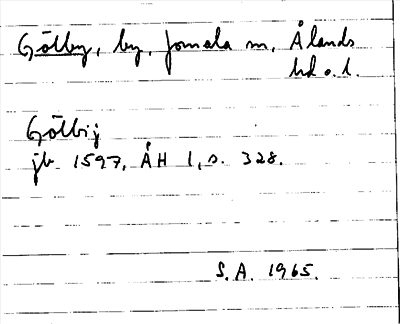 Götby, by, Jomala sn, Ålands
hd o. l.
Götbij
jb 1597, ÅH 1, s. 328.
S.A. 1965.